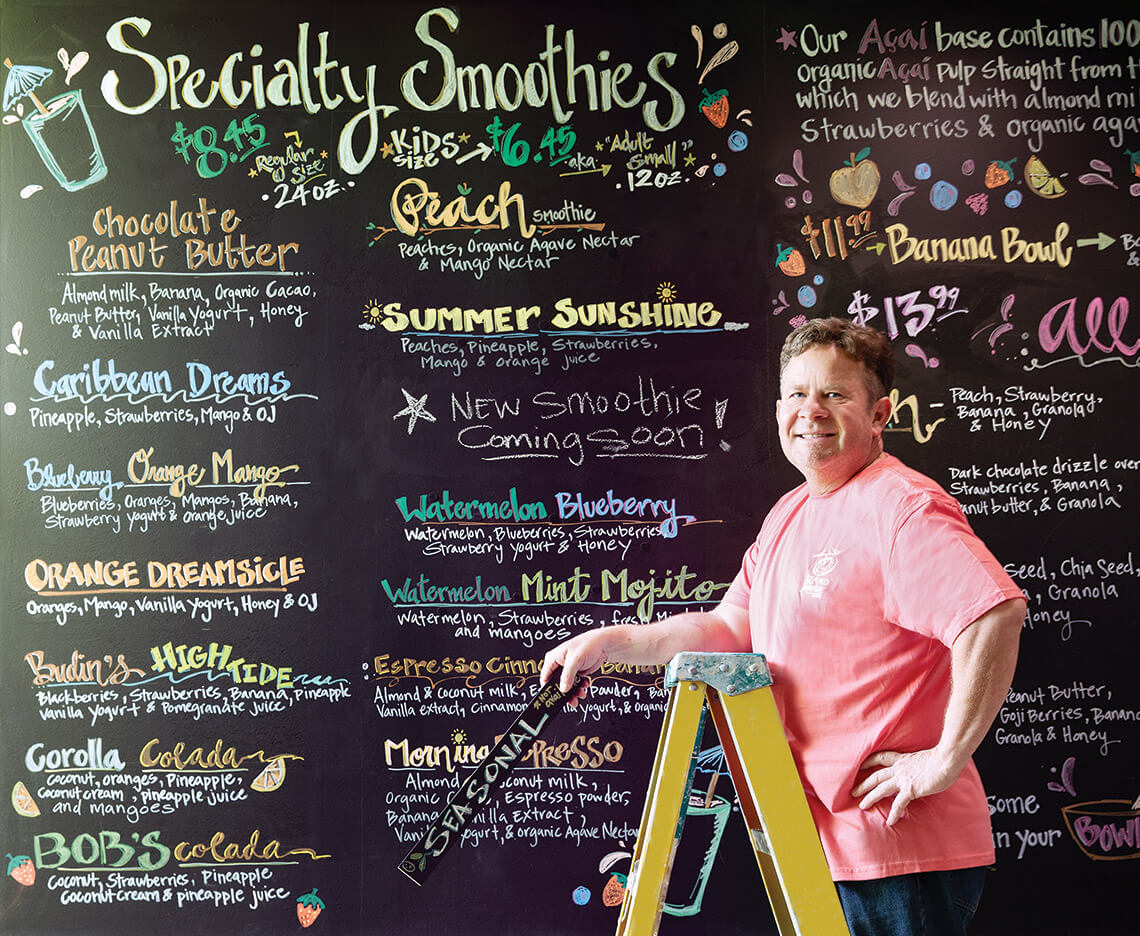 Specialty Smoothies
$8.45
Regular
Size
24oz.
Kids
Size
$6.45
aka
"Adult
Small"
12oz.
Chocolate
Peanut Butter
Almond milk, Banana, Organic Cacao,
Peanut Butter, Vanilla Yogurt, Honey
& Vanilla Extract
Caribbean Dreams
Pineapple, Strawberries, Mango & OJ
Blueberry Orange Mango
Blueberries, Oranges, Mangos, Banana,
Strawberry yogurt & orange juice
Orange Dreamsicle
Oranges, Mango, Vanilla Yogurt, Honey & OJ
Budin's High Tide
Blackberries, Strawberries, Banana, Pineapple
Vanilla Yogurt & Pomegranate juice
Corolla Colada
Coconut, oranges, Pineapple,
Coconut cream, pineapple juice
and mangoes
Bob's Colada
Coconut, Strawberries, Pineapple
Coconut cream & pineapple juice
Peach smoothie
Peaches, Organic Agave Nectar
& Mango Nectar
Summer Sunshine
Peaches, Pineapple, Strawberries,
Mango & orange juice
New Smoothie
Coming Soon!
Watermelon Blueberry
Watermelon, Blueberries, Strawberries
Strawberry Yogurt & Honey
Watermelon Mint Mojito
Watermelon, Strawberries,
and mangoes
Espresso
Almond & coconut milk, Powder,
Vanilla extract, Cinnamon & Organic
Morning Espresso
Coconut milk,
Organic Espresso powder,
Banana Vanilla Extract,
Yogurt, & organic Agave Nectar
SEASONAL
Our Açaí base contains 100
organic Açaí pulp straight from
which we blend with almond
Strawberries & organic
$11.99
Banana Bowl
$13.99
All
Peach, Strawberry,
Banana, Granola
& Honey
Dark chocolate drizzle over
Strawberries, Banana,
& Granola
Chia Seed,
Granola
Honey
Peanut Butter,
Goji Berries,
Granola & Honey
in your
Bowl